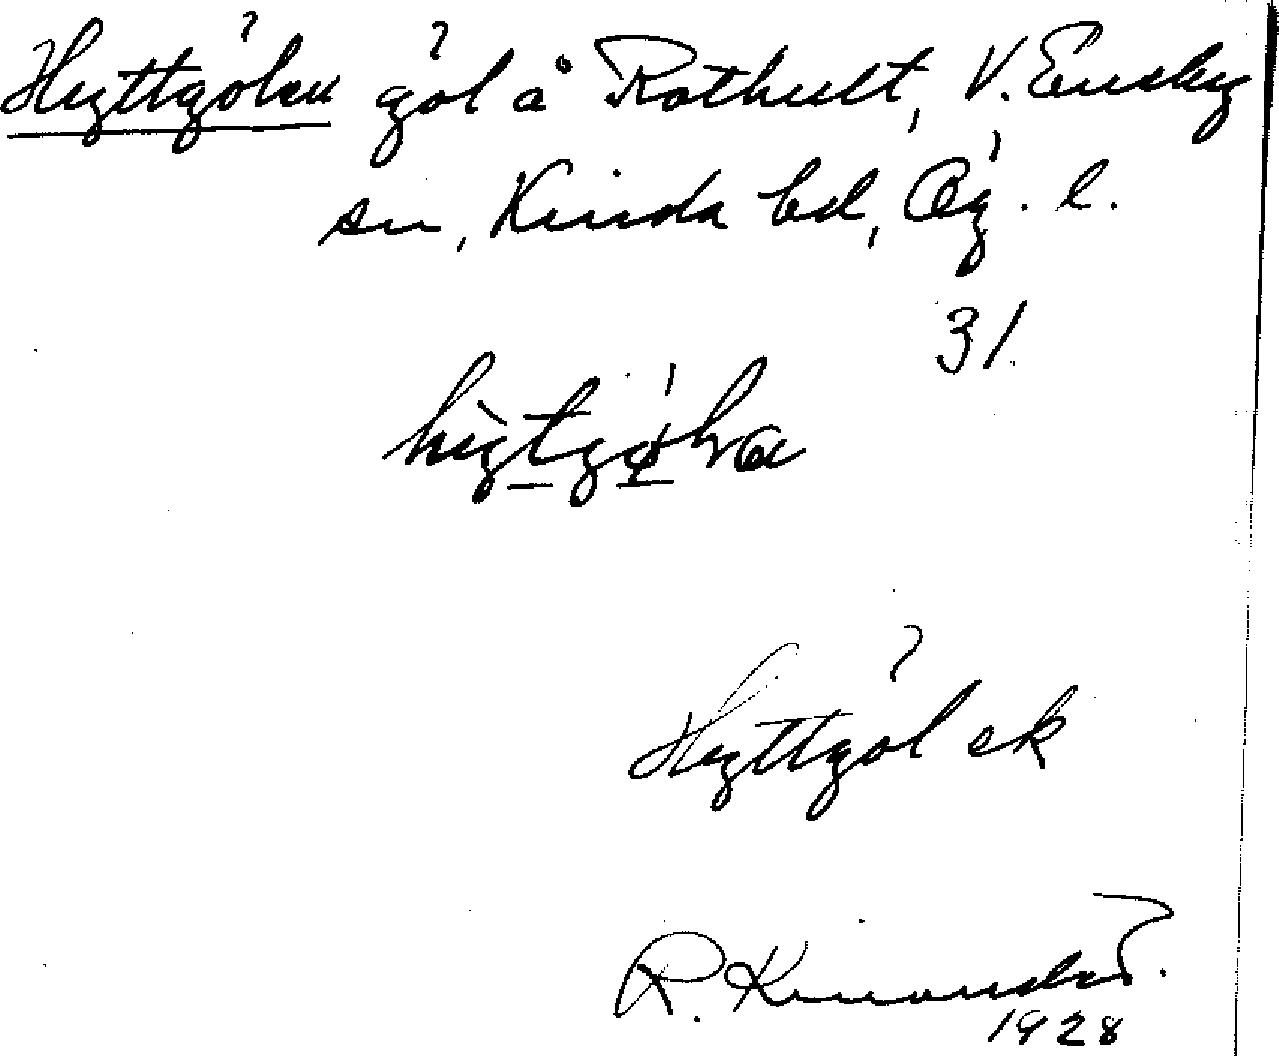 Hyttgölen göl å Rothult, V. Eneby
sn, Kinda hd, Ög. l.
31.
Hyttgöl ek
R. Kinander.
1928